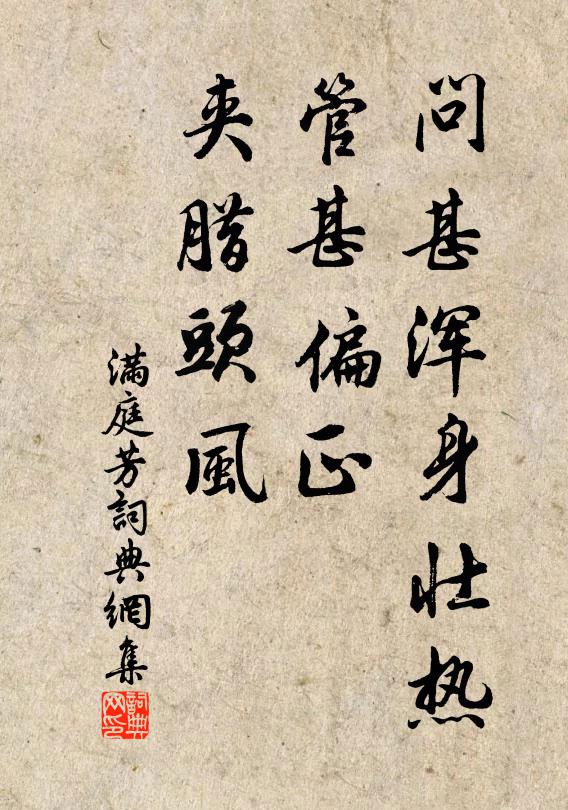 问甚浑身壮热
管甚偏正
夹腊頭風
满庭芳詞典網集
詞典
网印